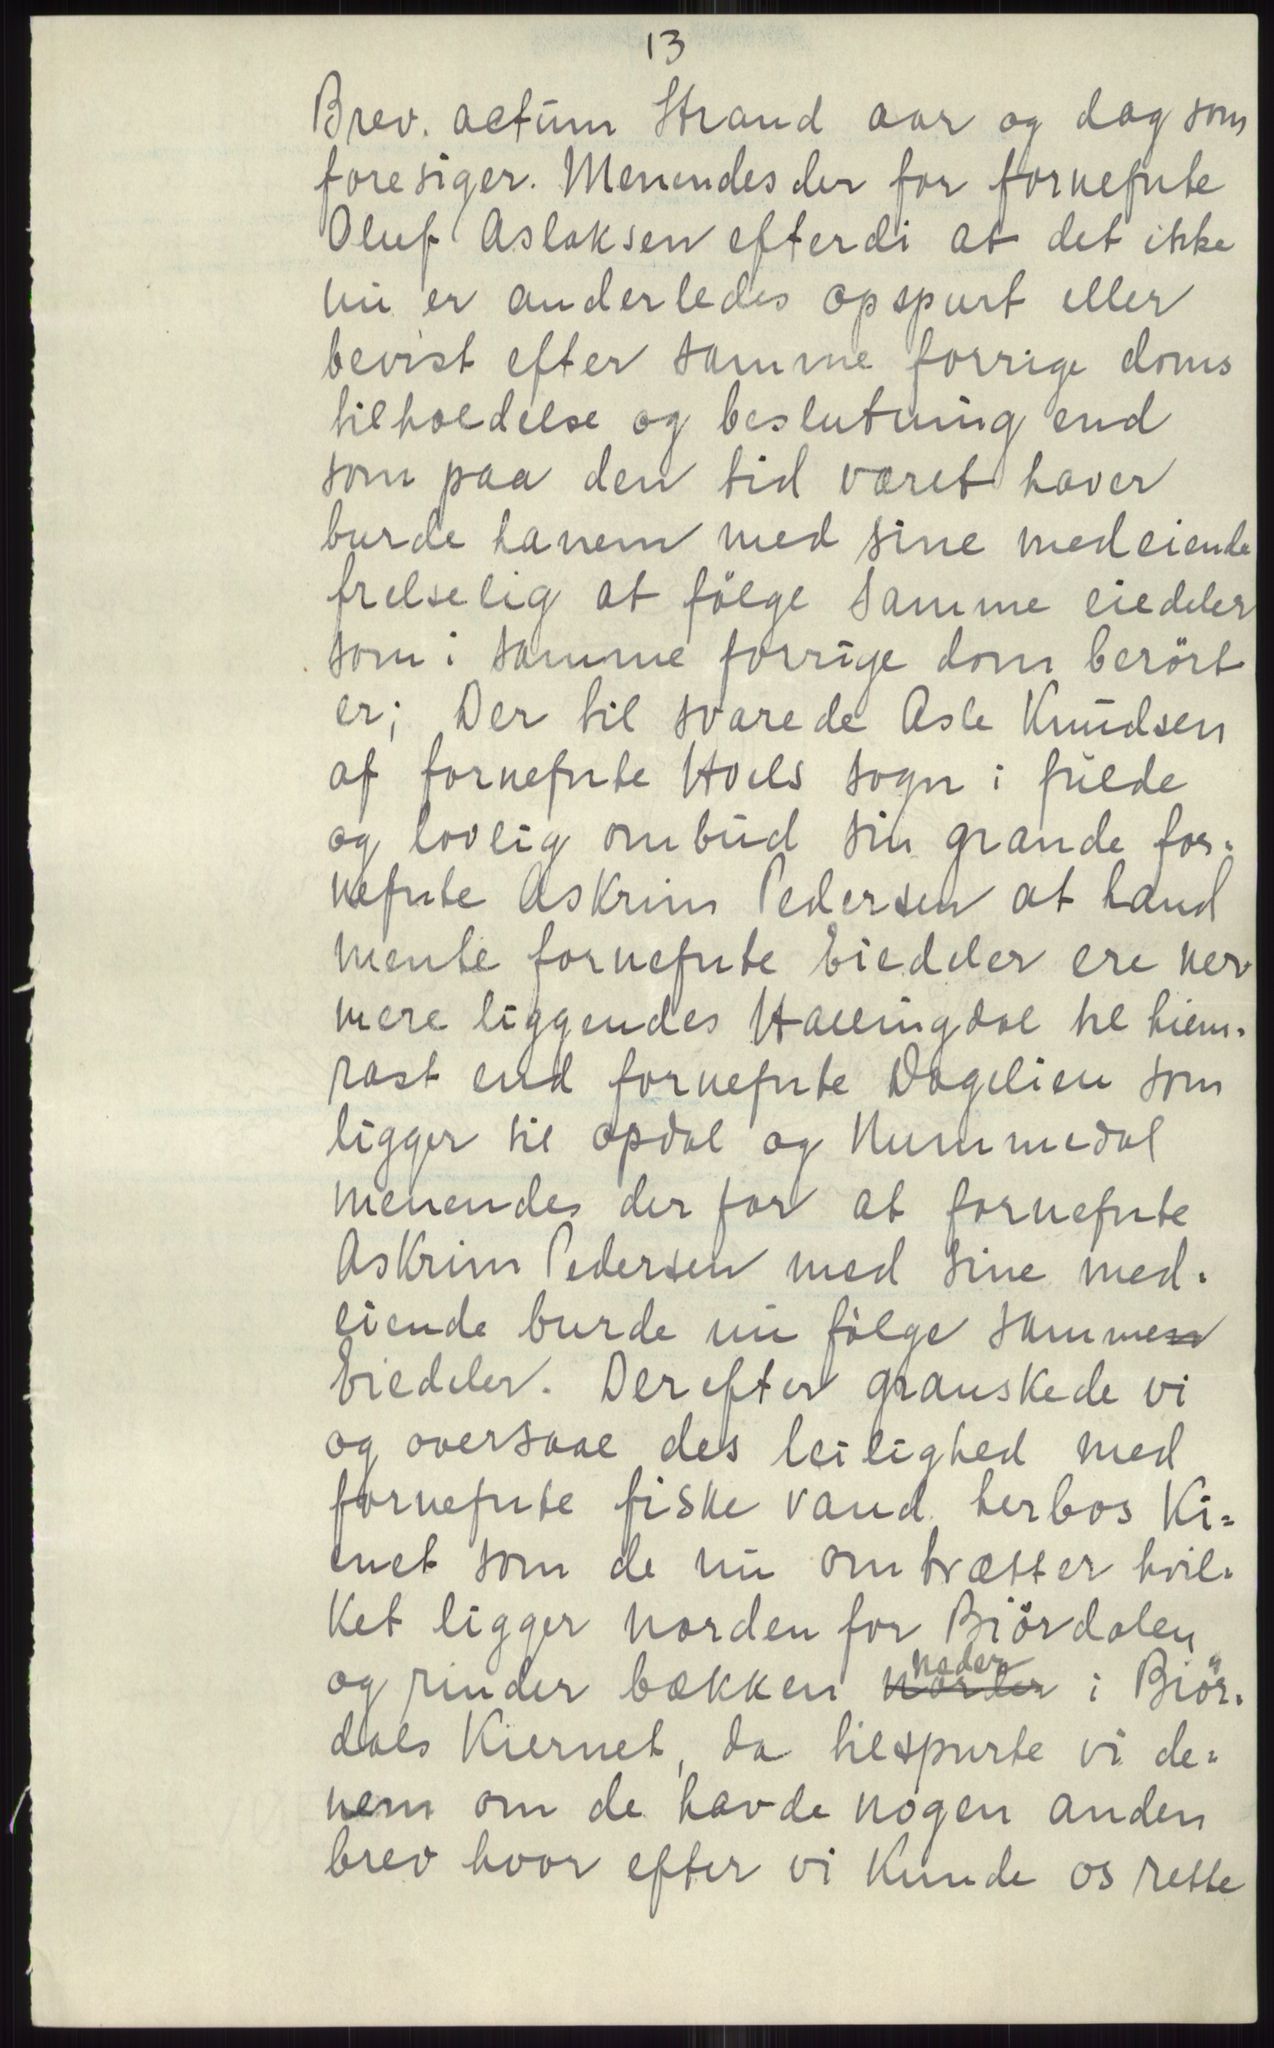 13
Brev. actum Strand aar og dag som
foresiger. Menendes der for fornefnte
Oluf Aslaksen efterdi at det ikke
nu er anderledes opspurt eller
bevist efter samme forrige doms
tilholdelse og beslutning end
som paa den tid været haver
burde hanem med sine medeiende
frelselig at fölge samme eiedeler
som i samme forrige dom berört
er; Der til svarede Asle Knudsen
af fornefnte Hols sogn i fulde
og lovlig ombud sin grande for-
nefnte Askrim Pedersen at hand
mente fornefnte Eiedeler ere ner
mere liggendes Hallingdal til hiem-
rast end fornefnte Dagelien som
ligger til opdal og Nummedal
menendes der for at fornefnte
Askrim Pedersen med sine med-
eiende burde nu fölge sammen
Eiedeler. Derefter granskede vi
og oversaae des leilighed med
fornefnte fiske vand herbos Ki=
enet som de nu omtrætter hvil-
ket ligger norden for Biördalen
og rinder bækken norder neder i Biör-
dals Kiernet, da tilspurte vi de=
nem om de havde nogen anden
brev hvor efter vi kunde os rette